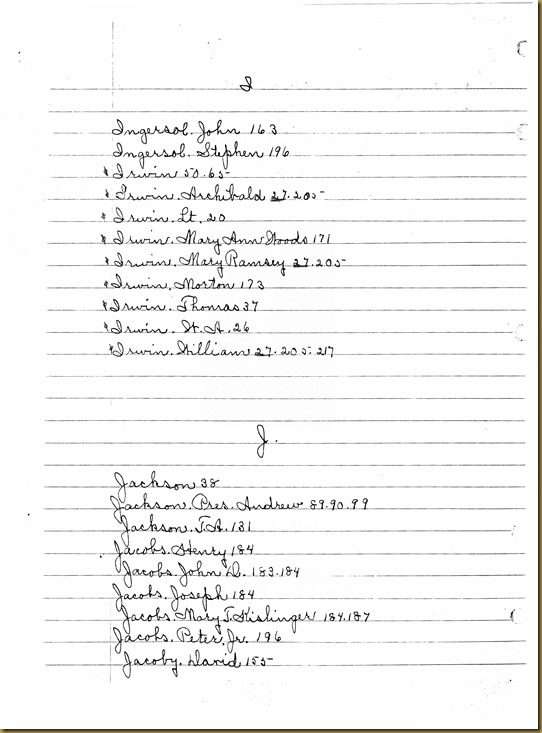 I
Ingersol. John 163
Ingersol. Stephen 196
* Irwin 50.65
* Irwin. Archibald 27.205
* Irwin. Lt. 20
* Irwin. Mary Ann Woods 171
* Irwin. Mary Ramsey 27.205
* Irwin. Morton 173
* Irwin. Thomas 37
* Irwin. W. A. 26
* Irwin. William 27.205.217
J.
Jackson 38
Jackson. Pres. Andrew 89.90.99
Jackson. T.A. 131
Jacobs. Henry 184
Jacobs. John D. 183.184
Jacobs. Joseph 184
Jacobs. Mary T. Kislinger 184.187
Jacobs. Peter. Jr. 196
Jacoby. David 155